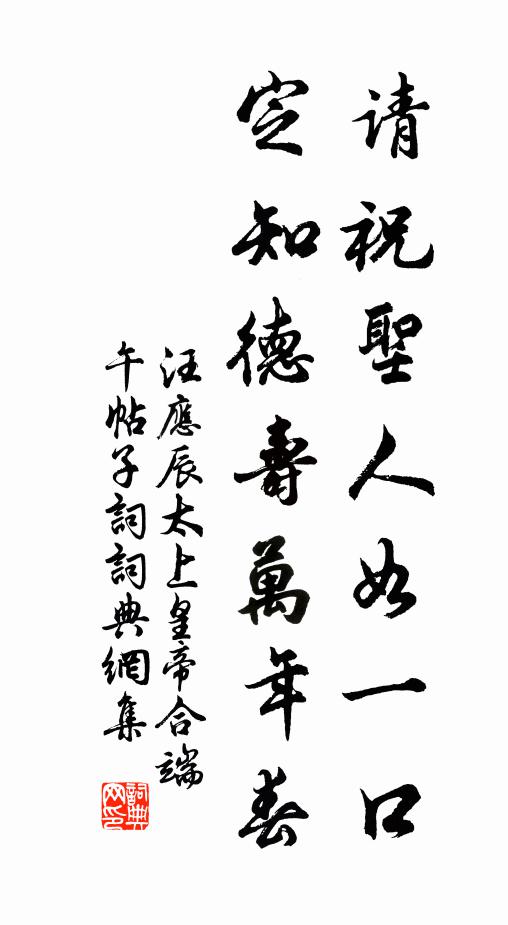 请祝聖人如一口
定知德壽萬年春
汪應辰太上皇帝合端
午帖子詞詞典網集
詞典网印